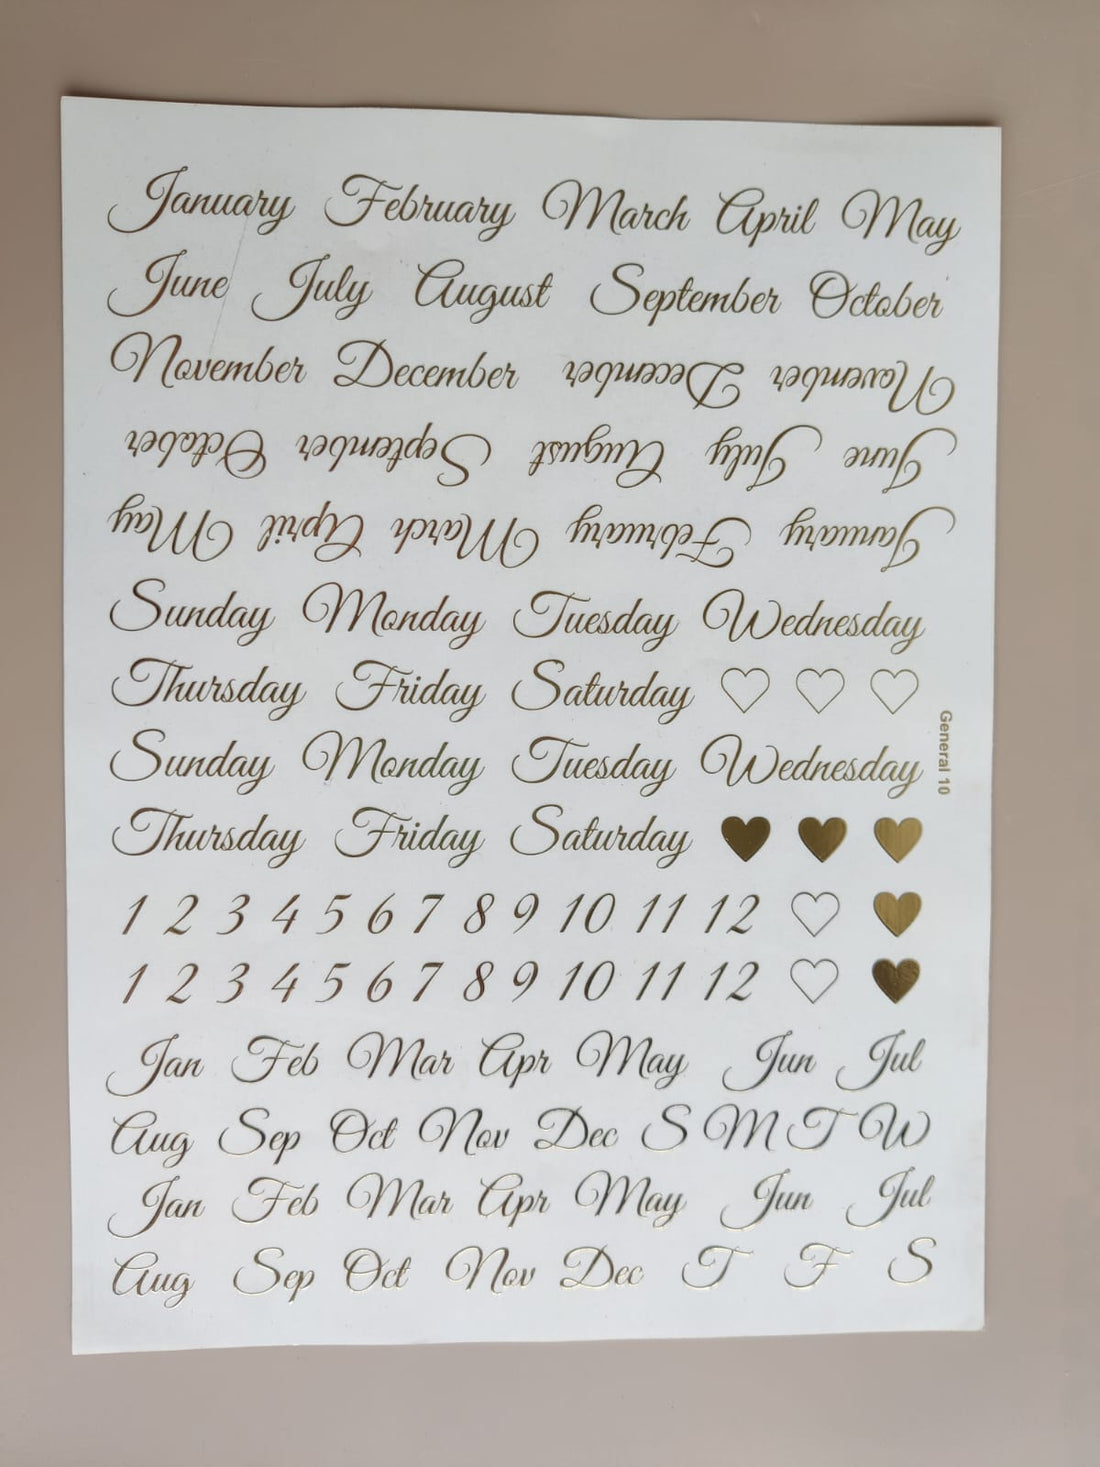 January February March April May
June July August September October
November December December November
October September August July June
May April March February January
Sunday Monday Tuesday Wednesday
Thursday Friday Saturday
General 10
Sunday Monday Tuesday Wednesday
Thursday Friday Saturday
1 2 3 4 5 6 7 8 9 10 11 12
1 2 3 4 5 6 7 8 9 10 11 12
Jan Feb Mar Apr May Jun Jul
Aug Sep Oct Nov Dec S M T W
Jan Feb Mar Apr May Jun Jul
Aug Sep Oct Nov Dec T F S